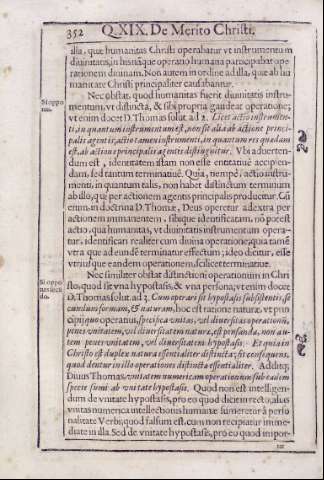 352 Q. XIX. De Merito Christi.
illa, quæ humanitas Christi operabatur vt instrumentum
diuinitatis, in his itaque operatio humana participabat ope-
rationem diuinam. Non autem in ordine ad illa, quæ ab hu
manitate Christi principaliter causabantur.
Si oppo
nas.
Nec obstat, quod humanitas fuerit diuinitatis instru-
mentum, vt distincta, & sibi propria gaudeat operatione;
vt enim docet D. Thomas solut. ad 2. Licet actio instrumen-
ti, in quantum instrumentum est, non sit alia ab actione princi-
palis agentis; actio tamen instrumenti, in quantum res quædam
est, ab actione principalis agentis distinguitur. Vbi aduerten-
dum est, identitatem istam non esse entitatiuè accipien-
dam, sed tantum terminatiuè. Quia, nempè, actio instru-
menti, in quantum talis, non habet distinctum terminum
ab illo, qui per actionem agentis principalis producitur. Cũ
enim, in doctrina D. Thomæ, Deus operetur ad extra per
actionem immanentem, sibique identificatam, nõ potest
actio, quæ humanitas, vt diuinitatis instrumentum opera-
tur, identificari realiter cum diuina operatione; quia tamẽ
vtra que ad eundẽ terminatur effectum; ideo dicitur, esse
vtriusque eandem operationem, scilicet terminatiuè.
Si oppo
nas secũ
do.
Nec similiter obstat distinctioni operationum in Chri
sto, quod sit vna hypostasis, & vna persona; vt enim docet
D. Thomas solut. ad 3. Cum operari sit hypostasis subsistentis, sed
secundum formam, & naturam, hoc est ratione naturæ, vt prin
cipij quo operatur, specifica vnitas, vel diuersitas operationũ,
penes vnitatem, vel diuersitatem naturæ, est pensanda, non au-
tem penes vnitatem, vel diuersitatem hypostasis. Et quia in
Christo est duplex natura essentialiter distincta; sit consequens,
quod dentur in illo operationes distinctæ essentialiter. Additq;
Diuus Thomas, vnitatem numericam operationum sub eadem
specie sumi ab vnitate hypostasis. Quod non est intelligen-
dum de vnitate hypostasis, pro eo quod dicit in recto; aliàs
vnitas numerica intellectionis humanæ sumeretur à perso
nalitate Verbi; quod falsum est, cum non recipiatur imme-
diatè in illa. Sed de vnitate hypostasis, pro eo quod in por-